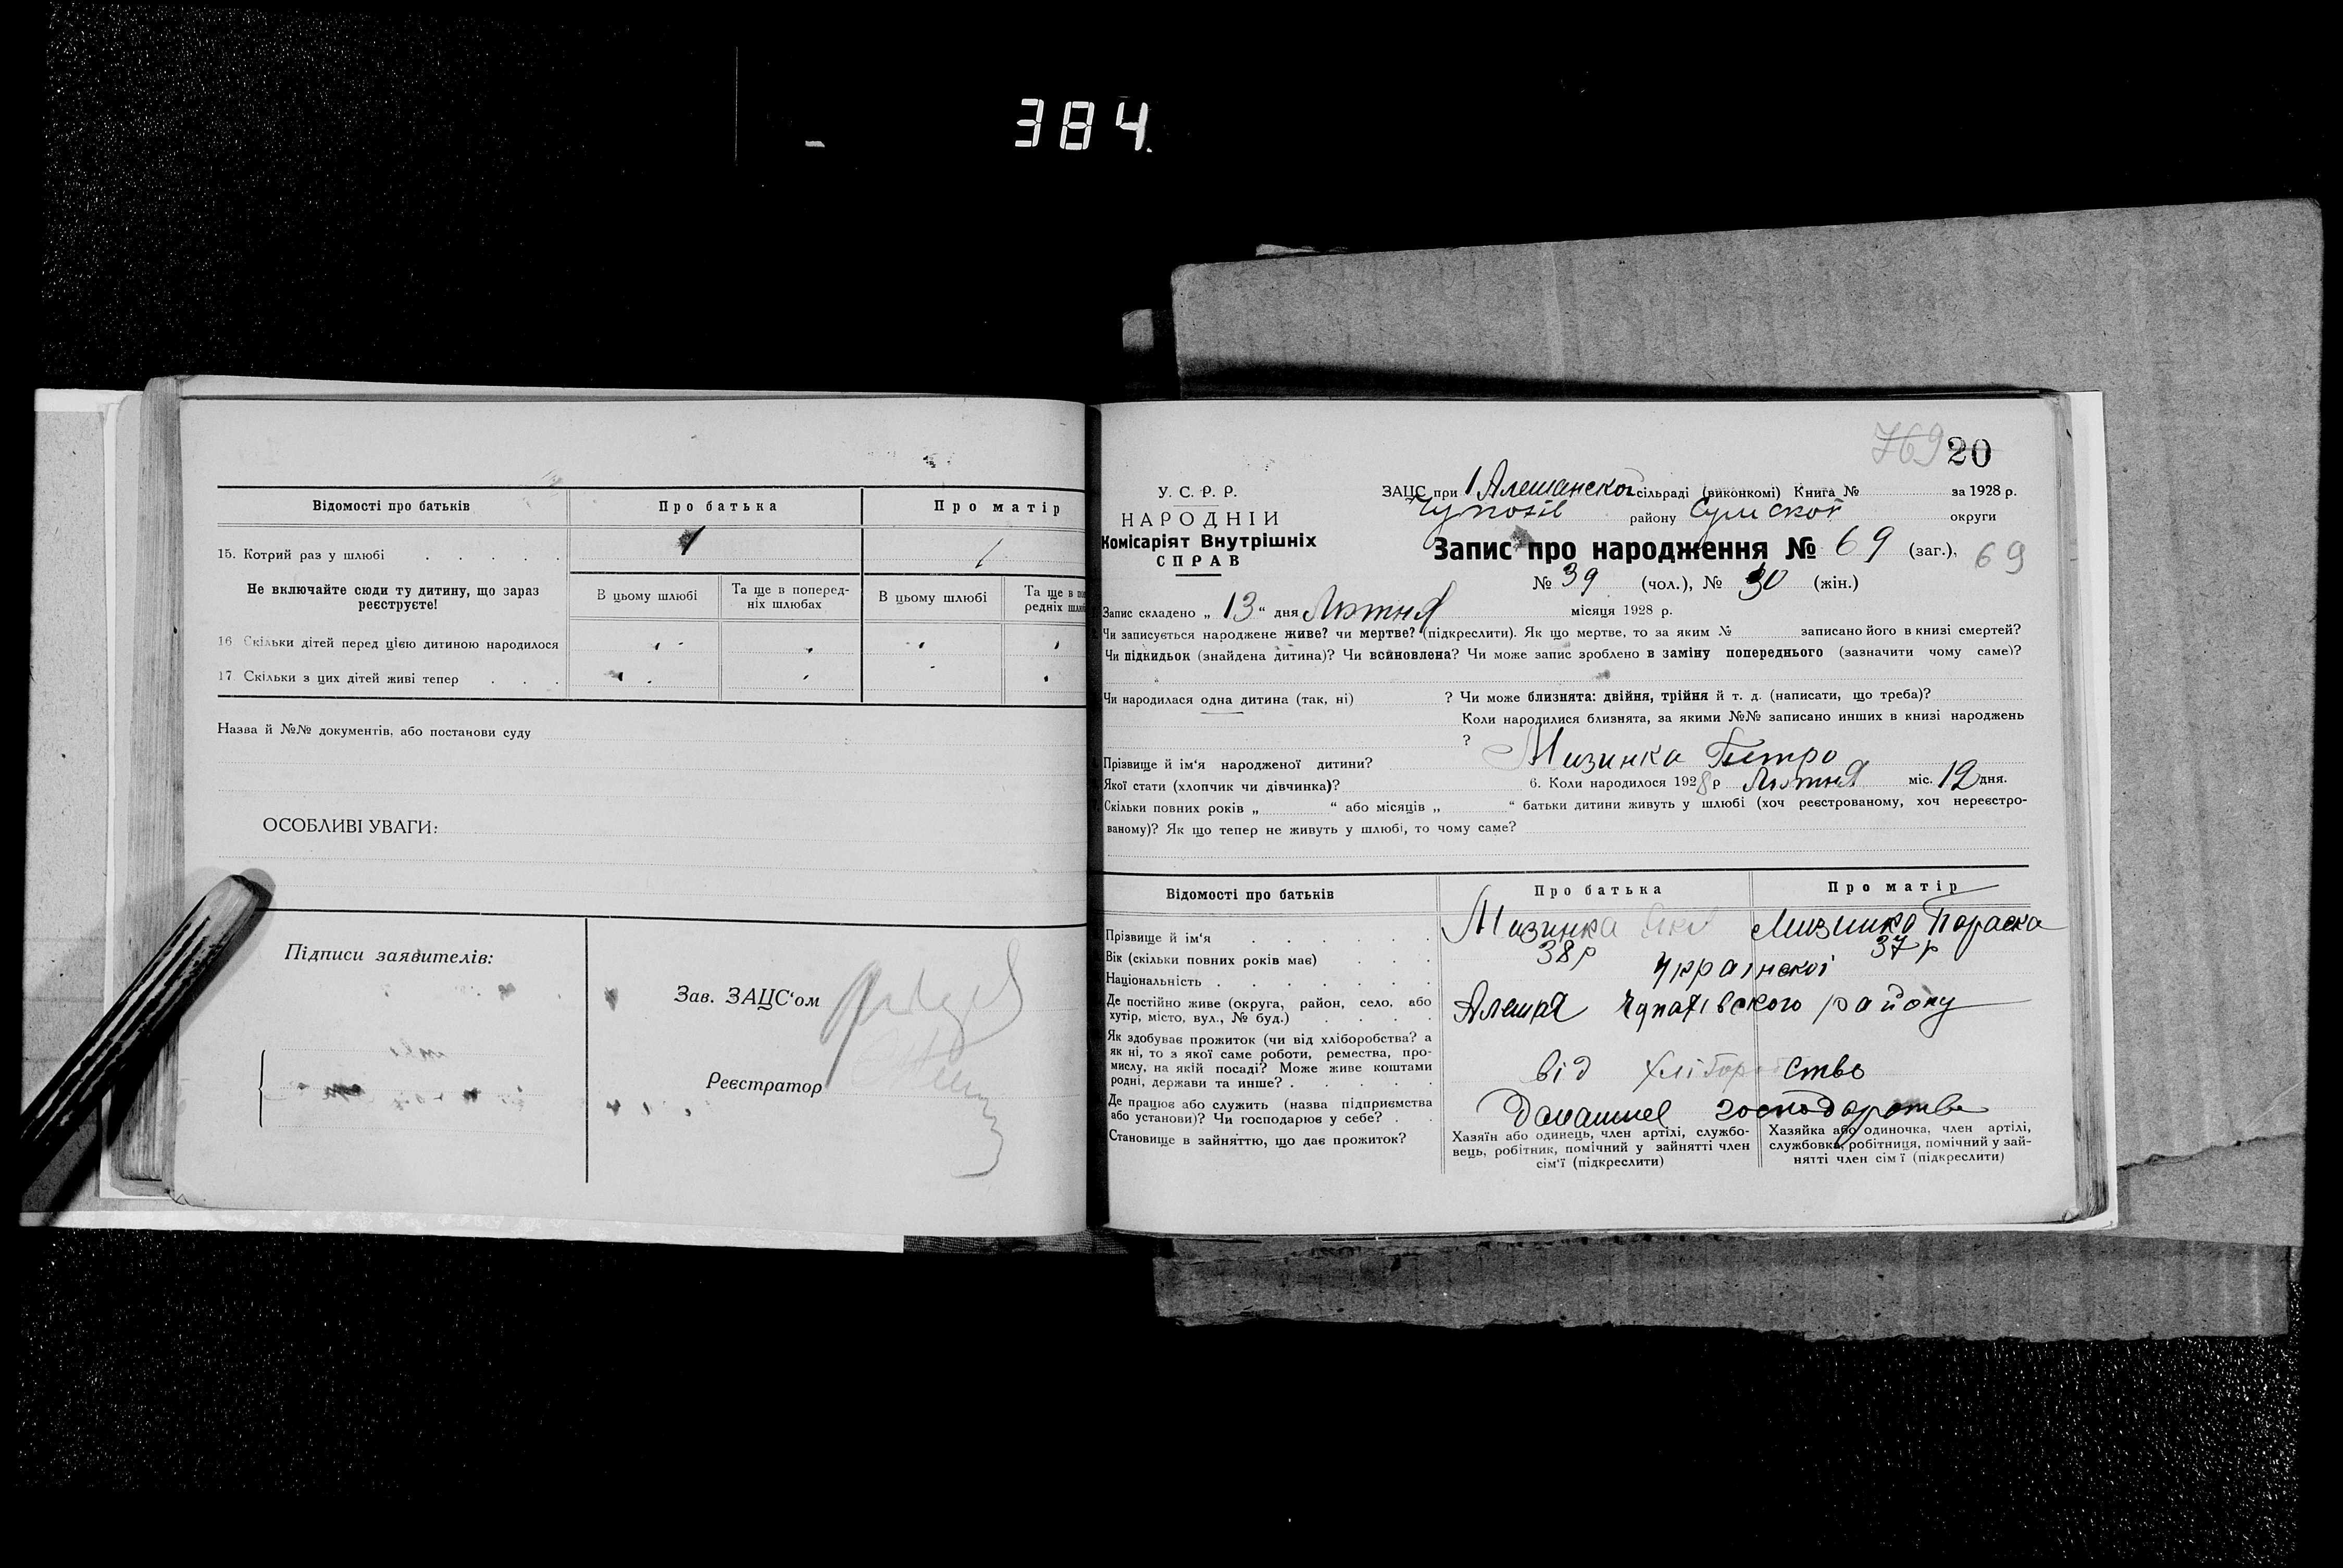 384.
Відомості про батьків
Про батька
Про матір
15. Котрий раз у шлюбі . . . . .
1
1
Не включайте сюди ту дитину, що зараз
реєструєте!
В цьому шлюбі
Та ще в поперед-
ніх шлюбах
В цьому шлюбі
Та ще в по
редніх шлю
16 Скільки дітей перед цією дитиною народилося
17. Скільки з цих дітей живі тепер . . .
Назва й №№ документів, або постанови суду
ОСОБЛИВІ УВАГИ:
Підписи заявителів:
Зав. ЗАЦС‘ом
Реєстратор
769 20
У. С. Р. Р.
НАРОДНІЙ
Комісаріят Внутрішніх
СПРАВ
ЗАЦС при 1 Алешанскої сільраді (виконкомі) Книга № за 1928 р.
району Сумской округи
Запис про народження № 69 (заг.), 69
№ 39 (чол.), № 30 (жін.)
Запис складено „ 13 “ дня Лютня місяця 1928 р.
Чи записується народжене живе? чи мертве? (підкреслити). Як що мертве, то за яким № записано його в книзі смертей?
Чи підкидьок (знайдена дитина)? Чи всиновлена? Чи може запис зроблено в заміну попереднього (зазначити чому саме)?
Чи народилася одна дитина (так, ні) ? Чи може близнята: двійня, трійня й т. д. (написати, що треба)?
Коли народилися близнята, за якими №№ записано инших в книзі народжень
?
Прізвище й ім‘я народженої дитини? Мизинка Петро
Якої стати (хлопчик чи дівчинка)? 6. Коли народилося 1928 р Лютня міс. 12 дня.
Скільки повних років „ “ або місяців „ “ батьки дитини живуть у шлюбі (хоч реєстрованому, хоч нереєстро-
ваному)? Як що тепер не живуть у шлюбі, то чому саме?
Відомості про батьків
Про батька
Про матір
Прізвище й ім‘я . . . . . .
Мизинка
Мизинко Параска
Вік (скільки повних років має) . . .
38 р
37 р
Національність . . . . . . .
Украінскоі
Де постійно живе (округа, район, село, або
хутір, місто, вул., № буд.) . . . .
Алешня Чупахівского району
Як здобуває прожиток (чи від хліборобства? а
як ні, то з якої саме роботи, ремества, про-
мислу, на якій посаді? Може живе коштами
родні, держави та инше? . . . . .
від хліборобство
Де працює або служить (назва підприємства
або установи)? Чи господарює у себе? . .
Домашнє господарство
Становище в зайняттю, що дає прожиток?
Хазяїн або одинець, член артілі, службо-
вець, робітник, помічний у зайнятті член
сім‘ї (підкреслити)
Хазяйка або одиночка, член артілі,
службовка, робітниця, помічний у зай-
нятті член сім ї (підкреслити)